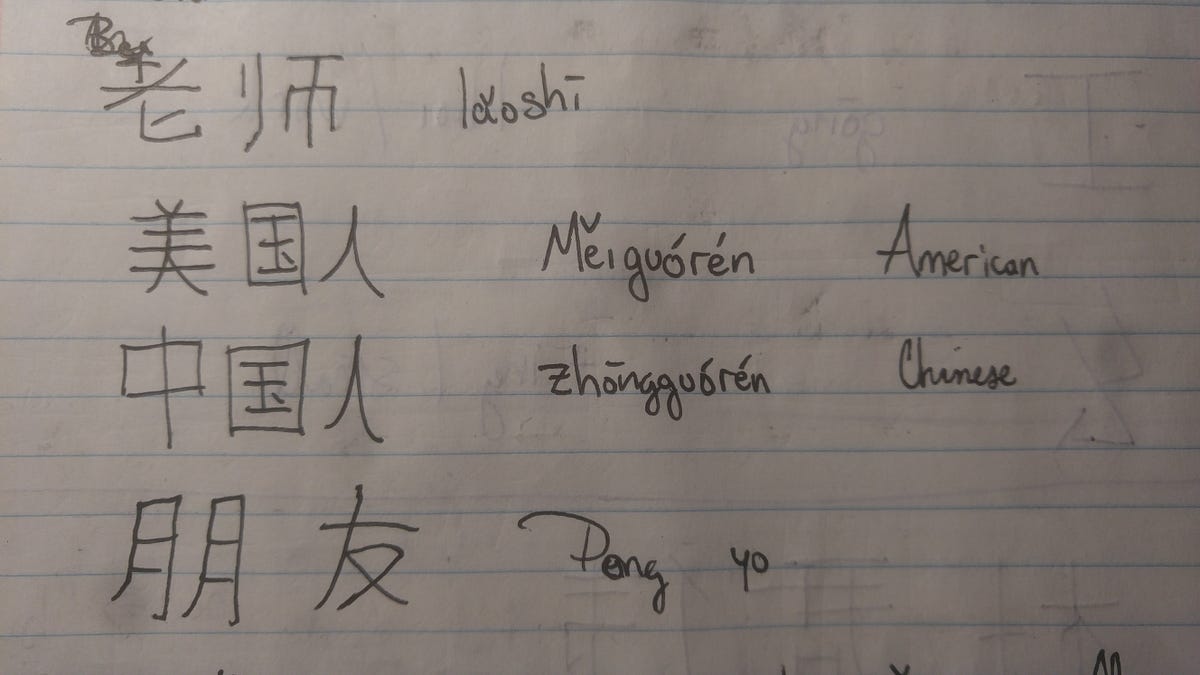 老师 lǎoshī
美国人 Měiguórén American
中国人 Zhōngguórén Chinese
朋友 Peng yo